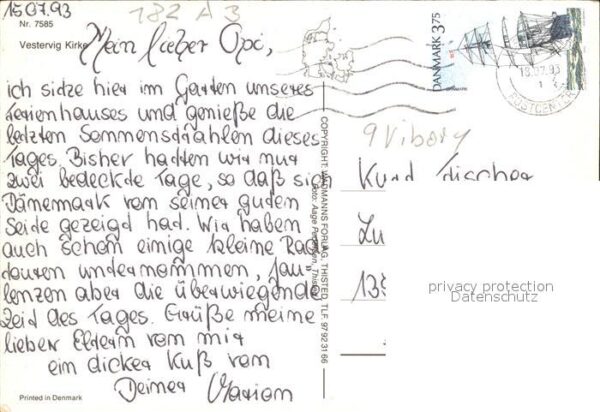 15.07.93
182 A 3
Nr. 7585
Vestervig Kirke
Mein lieber Opi,
ich sitze hier im Garten unseres
Ferienhauses und genieße die
letzten Sonnenstrahlen dieses
Tages. Bisher hatten wir nur
zwei bedeckte Tage, so daß sich
Dänemark von seiner guten
Seite gezeigt hat. Wir haben
auch schon einige kleine Rad-
touren unternommen, fau-
lenzen aber die überwiegende
Zeit des Tages. Grüße meine
lieben Eltern von mir
ein dicker Kuß von
Deiner Marion
Printed in Denmark
COPYRIGHT: WADMANNS FORLAG, THISTED, TLF. 97923166
Foto: Aage
DANMARK 3.75
POSTCENTER
9 Viborg
Kurt
Lu
13
privacy protection
Datenschutz